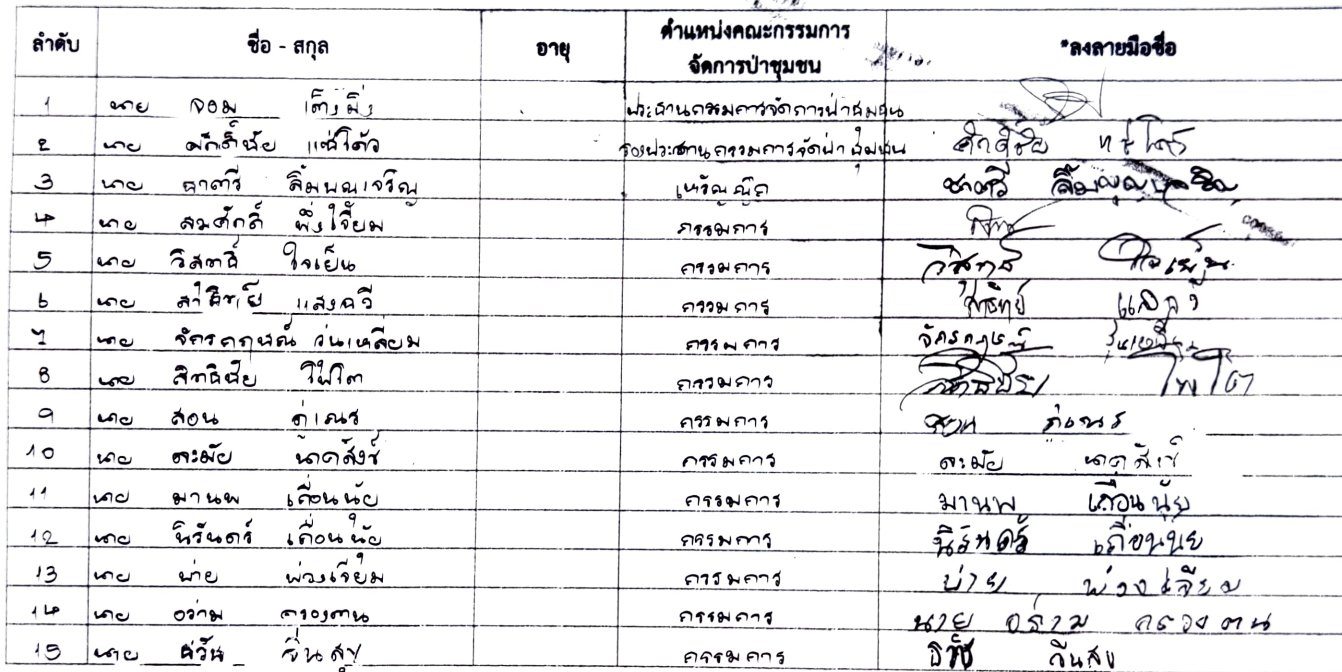 ลำดับ ชื่อ - สกุล อายุ ตำแหน่งคณะกรรมการ *ลงลายมือชื่อ
จัดการป่าชุมชน
1 นาย จอม ประธานกรรมการจัดการป่าชุมชน
2 นาย ศักดิ์ชัย แซ่โค้ว รองประธานกรรมการจัดป่าชุมชน ศักดิ์ชัย
3 นาย ชาตรี ลิ้มบุญเจริญ เหรัญญิก ชาตรี
4 นาย สมศักดิ์ พึ่งเจียม กรรมการ
5 นาย วิสุทธิ์ ใจเย็น กรรมการ วิสุทธิ์ ใจเย็น
6 นาย สาธิตย์ แสงฉวี กรรมการ
7 นาย จักรกฤษณ์ วุ่นเหลี่ยม กรรมการ จักรกฤษณ์
8 นาย สิทธิชัย โพโต กรรมการ สิทธิชัย โพโต
9 นาย สอน ภู่เณร กรรมการ สอน ภู่เณร
10 นาย ละมัย นาคสังข์ กรรมการ ละมัย นาคสังข์
11 นาย มานพ เถื่อนนุ้ย กรรมการ มานพ เถื่อนนุ้ย
12 นาย นิรันดร์ เถื่อนนุ้ย กรรมการ นิรันดร์ เถื่อนนุ้ย
13 นาย พ่วงเจียม กรรมการ พ่วงเจียม
14 นาย อร่าม กรองตน กรรมการ นาย อร่าม กรองตน
15 นาย จีนสุข กรรมการ จีนสุข